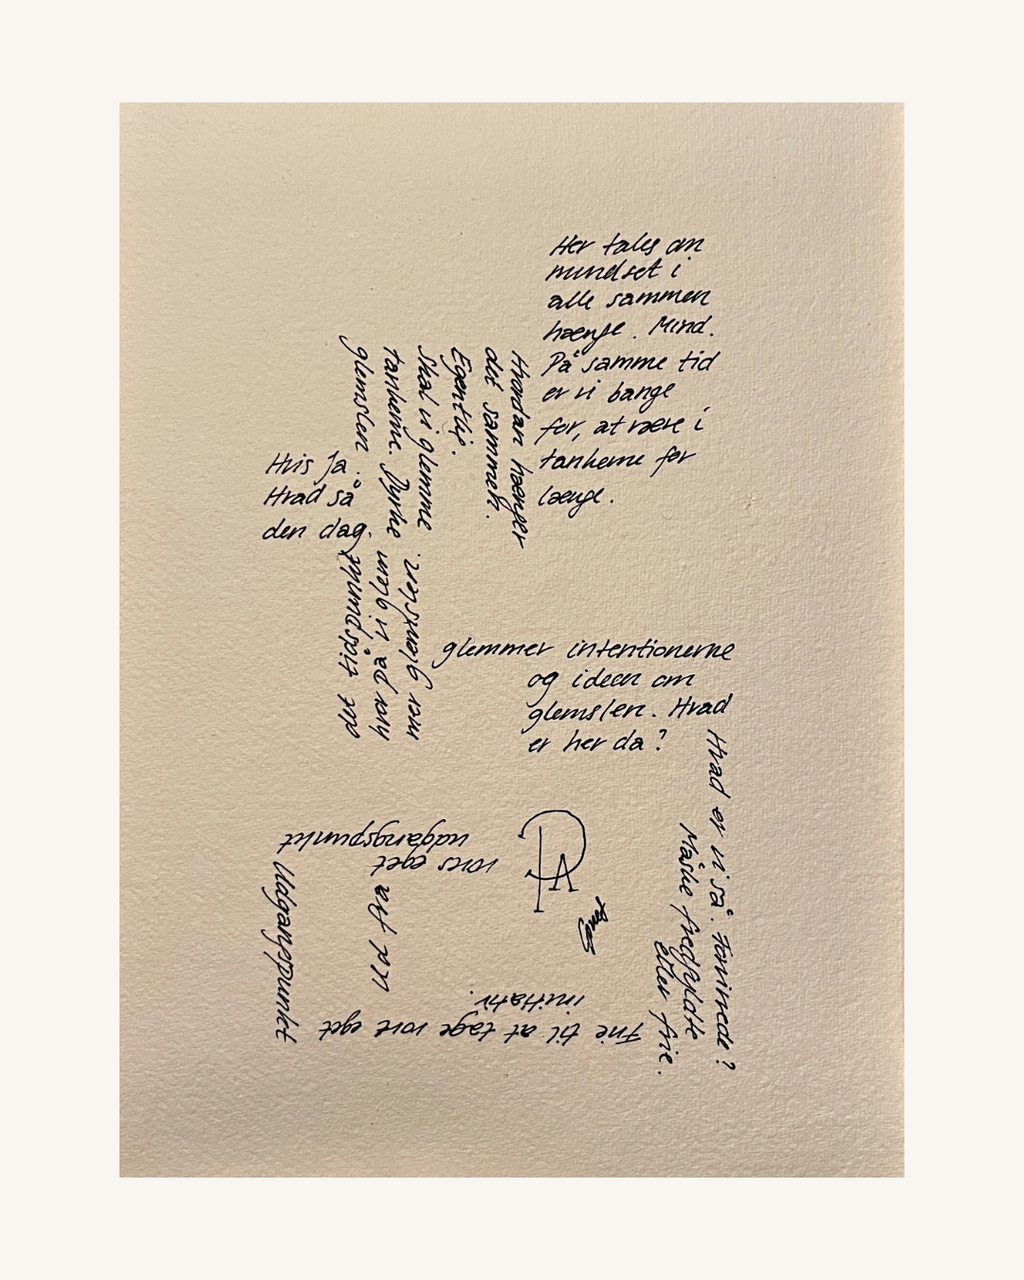 Her tales om
mindset i
alle sammen
hænge. Mind.
På samme tid
er vi bange
for, at være i
tankerne for
længe.
Hvordan hænger
det sammen.
Egentlig.
Skal vi glemme
tankerne. Dyrke
glemslen.
Hvis Ja.
Hvad så
den dag.
det tidspunkt
hvor på vi glem
mer glemslen.
glemmer intentionerne
og ideen om
glemslen. Hvad
er her da?
Hvad er vi så. Forvirrede?
Måske fredfyldte
eller frie.
Frie til at tage vore eget
initiativ.
ud fra
vores eget
udgangspunkt
Udgangspunkt